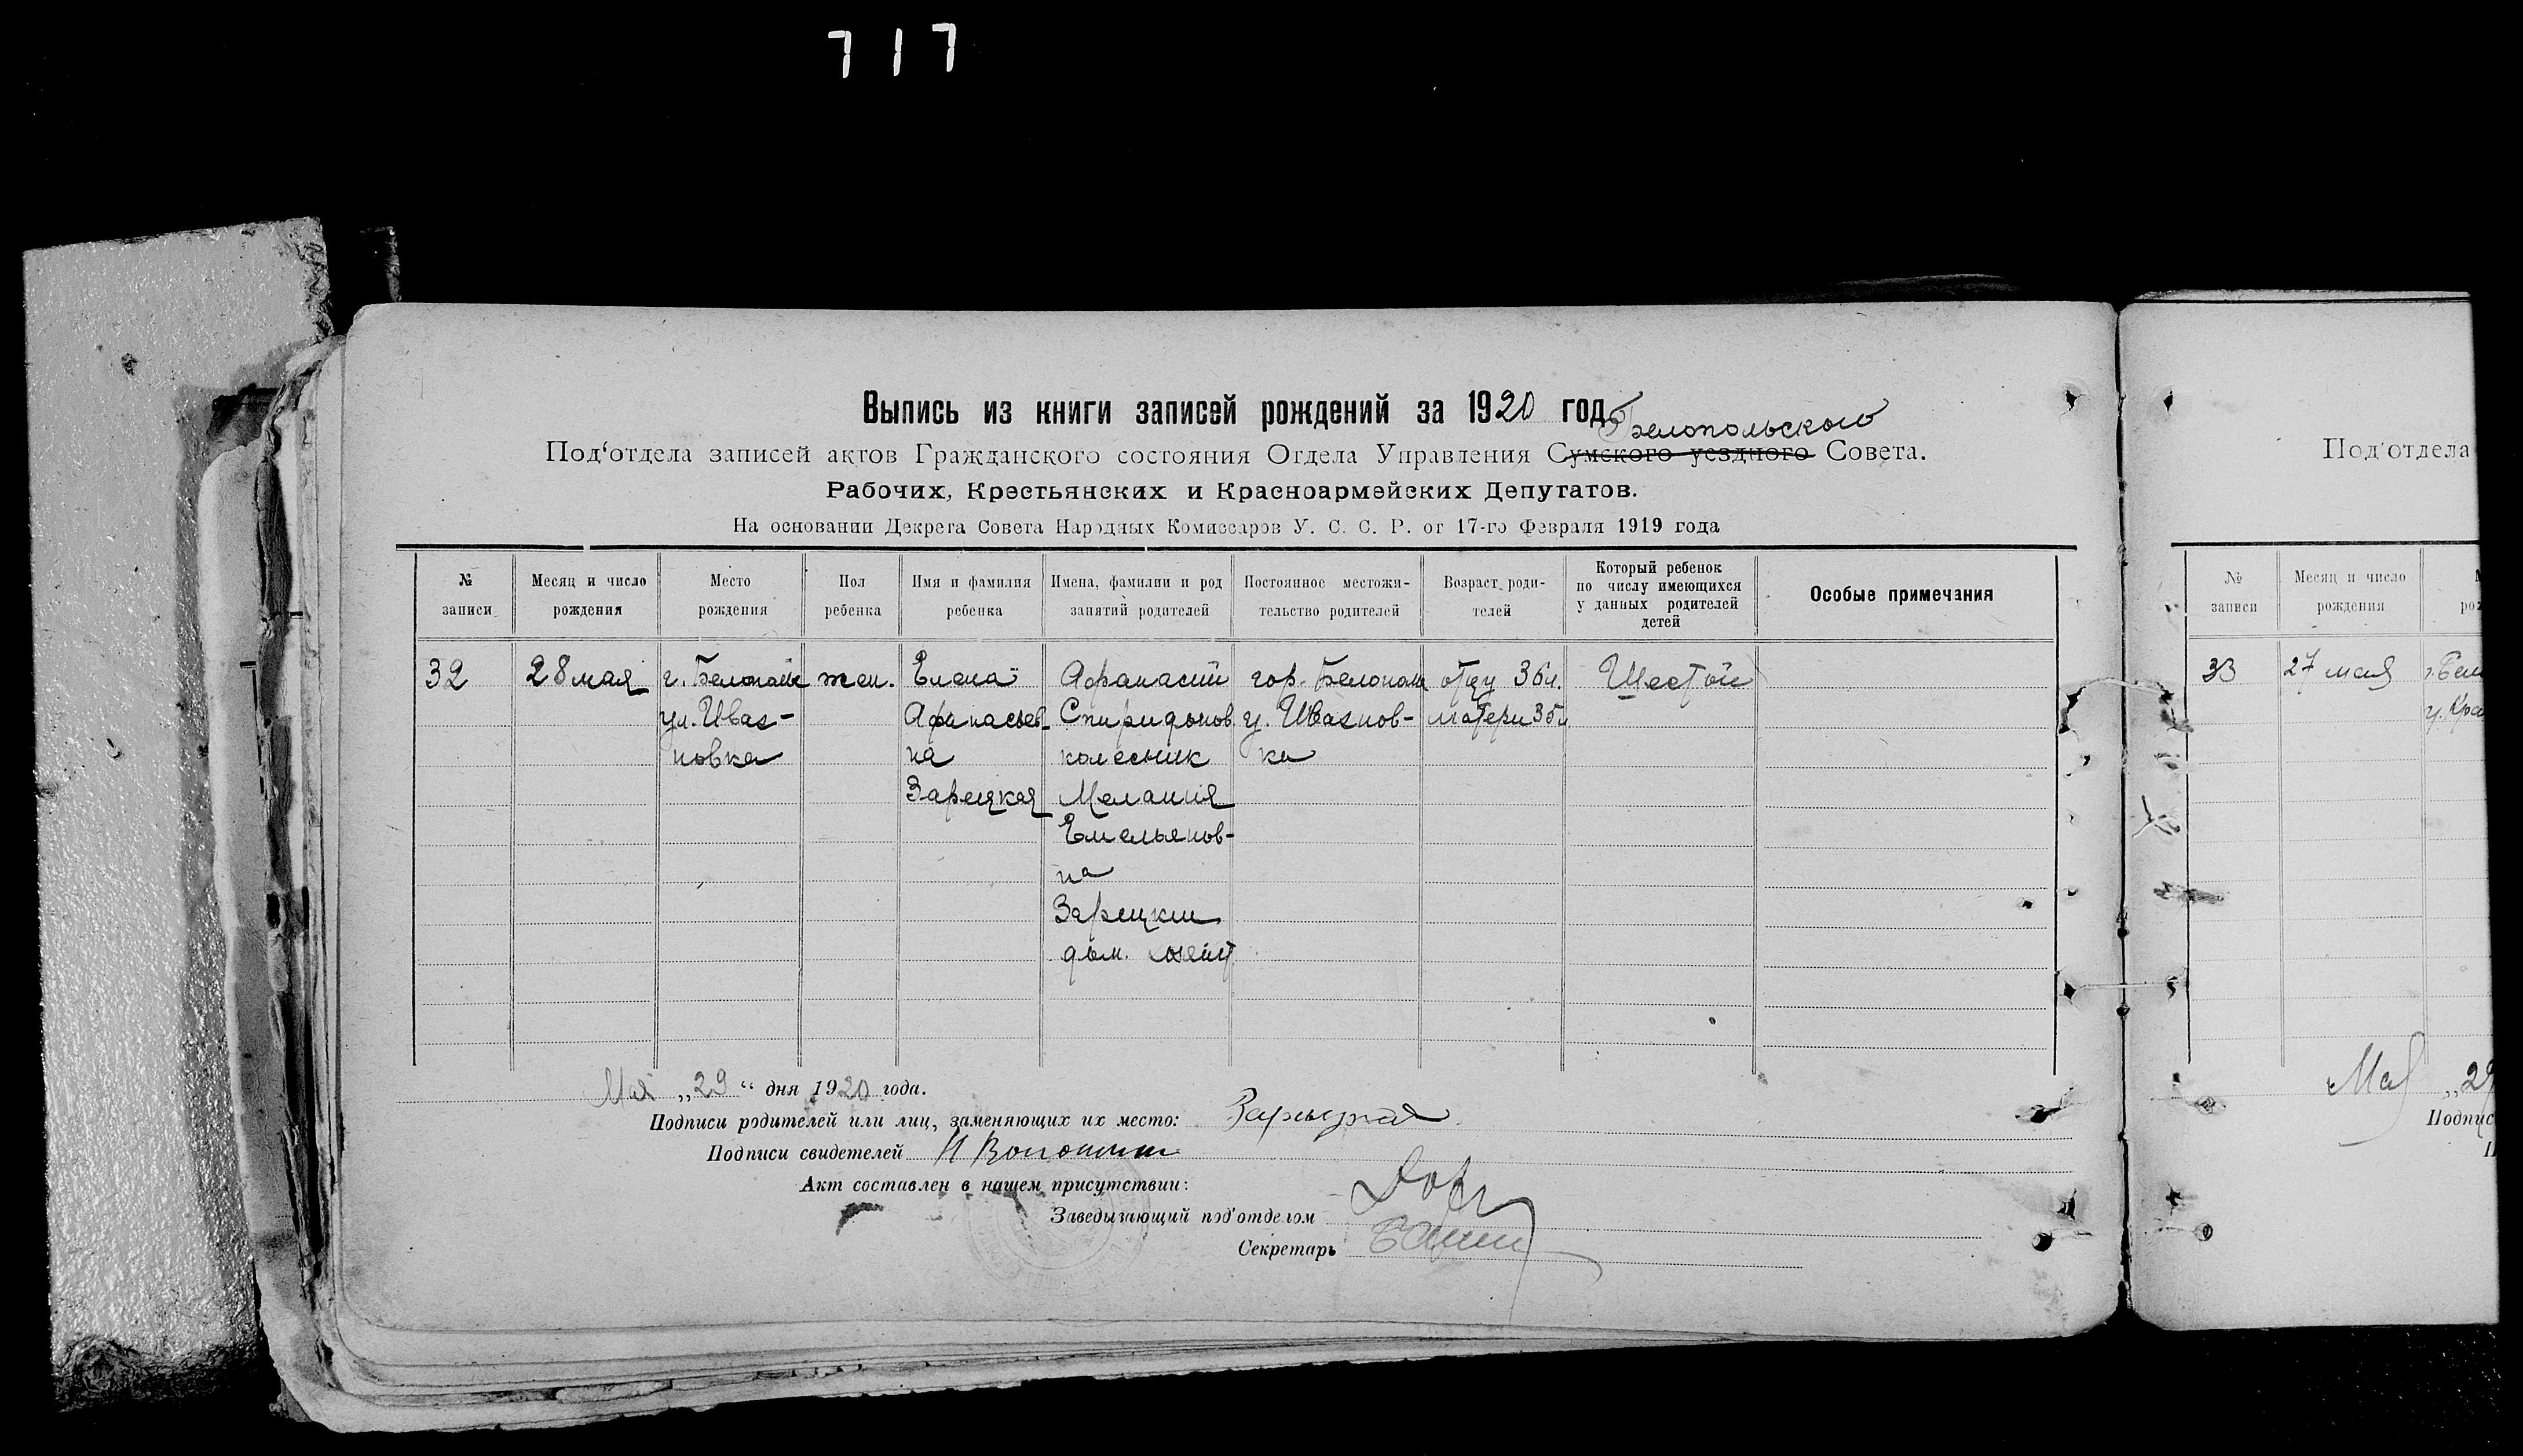 717
Выпись из книги записей рождений за 1920 год
Белопольского
Под'отдела записей актов Гражданского состояния Отдела Управления Сумского уездного Совета.
Рабочих, Крестьянских и Красноармейских Депутатов.
На основании Декрета Совета Народных Комиссаров У. С. С. Р. от 17-го Февраля 1919 года
№ записи
Месяц и число рождения
Место рождения
Пол ребенка
Имя и фамилия ребенка
Имена, фамилии и род занятий родителей
Постоянное местожительство родителей
Возраст родителей
Который ребенок по числу имеющихся у данных родителей детей
Особые примечания
32
28 мая
г. Белополье
ул. Иваз-
новка
жен.
Елена
Афанасьев-
на
Зарецкая
Афанасий
Спиридонов
колесник
Мелания
Емельянов-
на
Зарецкие
дом.
гор. Белополье
у. Ивазнов-
ка
отцу 36 л.
матери 35 л
Шестой
Мая „29“ дня 1920 года.
Подписи родителей или лиц, заменяющих их место: Зарецкая
Подписи свидетелей
Акт составлен в нашем присутствии:
Заведывающий под'отделом
Секретарь
Под'отдела
№ записи
Месяц и число рождения
33
27 мая
г. Бел
у. Кра
Мая „29
Подпис